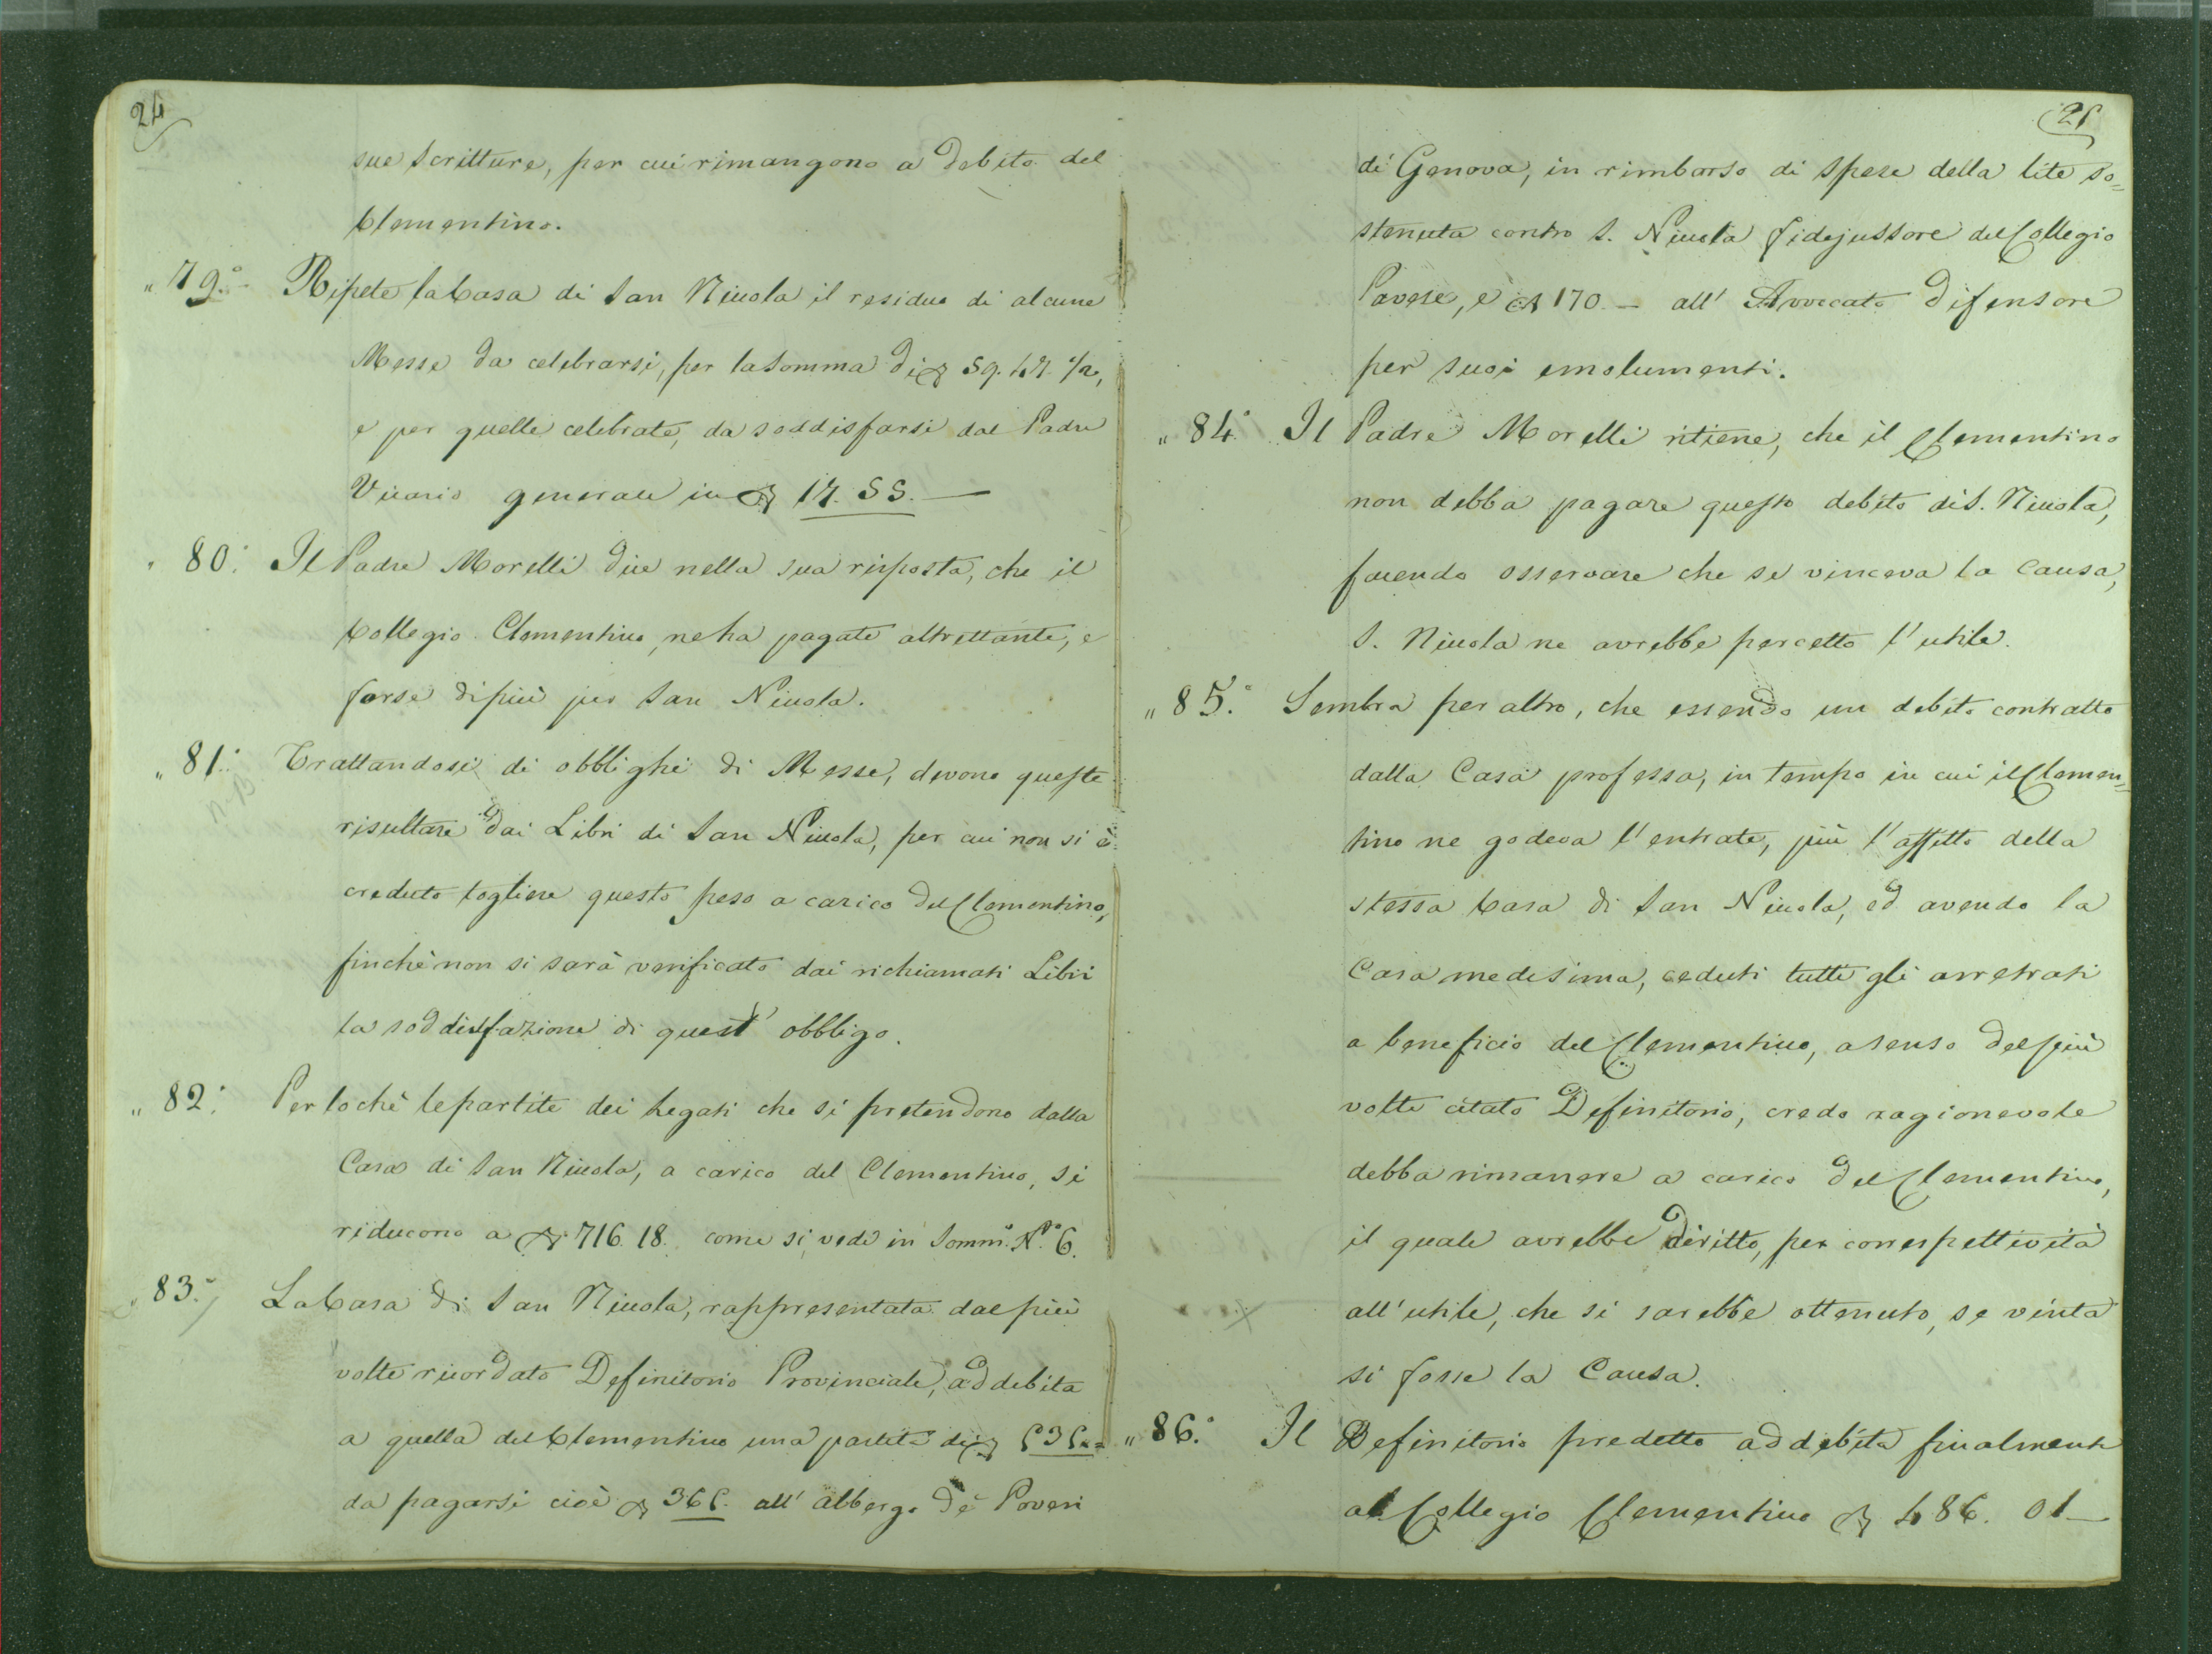 24
sue Scritture, per cui rimangono a debito del
Clementino.
„ 79.° Ripete la Casa di San Nicola il residuo di alcune
Messe da celebrarsi, per la Somma di 59. 47. 1/2,
e per quelle celebrate, da soddisfarsi dal Padre
Vicario generale in 17. 55. —
„ 80.° Il Padre Morelli dice nella sua risposta, che il
Collegio Clementino, ne ha pagate altrettante, e
forse di più per San Nicola.
„ 81.° Trattandosi di obblighi di Messe, devono queste
NB
risultare dai Libri di San Nicola, per cui non si è
creduto togliere questo peso a carico del Clementino,
finchè non si sarà verificato dai richiamati Libri
la soddisfazione di quest' obbligo.
„ 82.° Per lochè le partite dei Legati che si pretendono dalla
Casa di San Nicola, a carico del Clementino, si
riducono a 716. 18. come si vede in Somm.° N.° 6.
„ 83.° La Casa di San Nicola, rappresentata dal più
volte ricordato Definitorio Provinciale, addebita
a quella del Clementino una partita di 535.
da pagarsi cioè 365. all' albergo de' Poveri
25
di Genova, in rimborso di Spese della lite so=
stenuta contro S. Nicola fidejussore del Collegio
Pavese, e 170. — all' Avvocato Difensore
per suoi emolumenti.
„ 84.° Il Padre Morelli ritiene, che il Clementino
non debba pagare questo debito di S. Nicola,
facendo osservare che se vinceva la Causa,
S. Nicola ne avrebbe percetto l'utile.
„ 85.° Sembra per altro, che essendo un debito contratto
dalla Casa professa, in tempo in cui il Clemen=
tino ne godeva l'entrate, più l'affitto della
stessa Casa di San Nicola, ed avendo la
Casa medesima, ceduti tutti gli arretrati
a beneficio del Clementino, a senso del più
volte citato Definitorio, credo ragionevole
debba rimanere a carico del Clementino,
il quale avrebbe diritto, per correspettività
all'utile, che si sarebbe ottenuto, se vinta
si fosse la Causa.
„ 86.° Il Definitorio predetto addebita finalmente
al Collegio Clementino 486. 01—